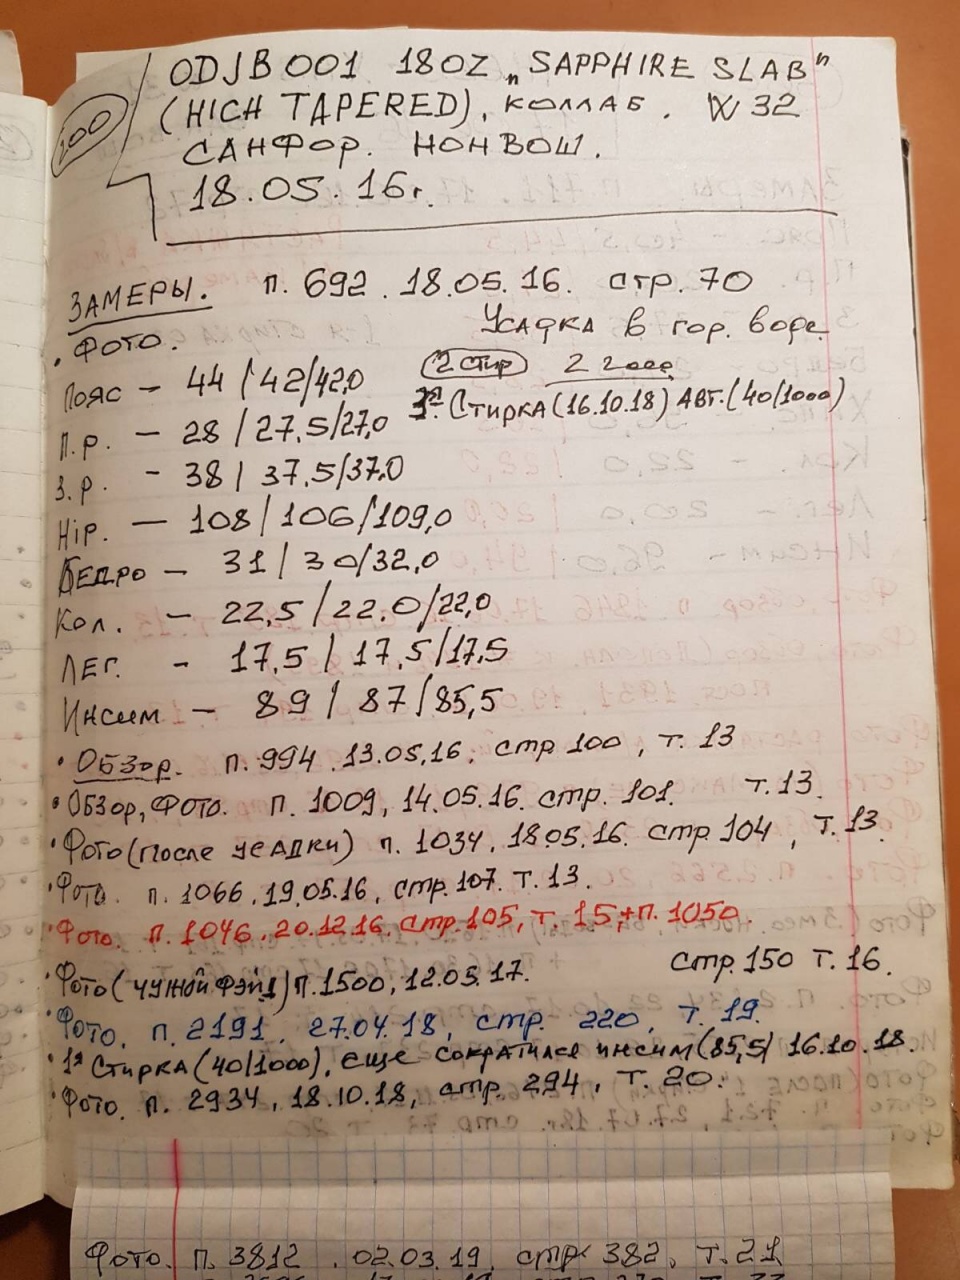 200
ODJB001 18OZ „SAPPHIRE SLAB"
(HICH TAPERED), КОЛЛАБ. W32
САНФОР. НОНВОШ.
18.05.16г.
ЗАМЕРЫ. п. 692. 18.05.16. стр. 70
• ФОТО. Усадка в гор. воде
2 стир 2 года
Пояс – 44 / 42/42,0
3я Стирка (16.10.18) АВТ. (40/1000)
П.р. – 28 / 27,5/27,0
З.р. – 38 / 37,5/37,0
Hip. – 108 / 106/109,0
БЕДРО – 31 / 30/32,0
Кол. – 22,5 / 22.0/22,0
ЛЕГ. – 17,5 / 17,5/17,5
Инсим – 89 / 87 / 85,5
• ОБЗОР. п. 994. 13.05.16. стр 100, т. 13
• ОБЗОР, ФОТО. П. 1009, 14.05.16. стр. 101. т. 13.
• Фото (после усадки) п. 1034, 18.05.16. стр. 104, т. 13
• Фото. п. 1066. 19.05.16, стр. 107. т. 13.
• Фото. п. 1046. 20.12.16. стр. 105, т. 15, + п. 1050.
• Фото (чужой фэйд) п. 1500, 12.03.17. стр. 150 т. 16.
• Фото. п. 2191. 27.04.18, стр. 220, т. 19.
• 1я Стирка (40/1000), еще сократился инсим (85,5) 16.10.18.
• Фото. п. 2934, 18.10.18, стр. 294, т. 20.
Фото. п. 3812. 02.03.19, стр. 382, т. 21